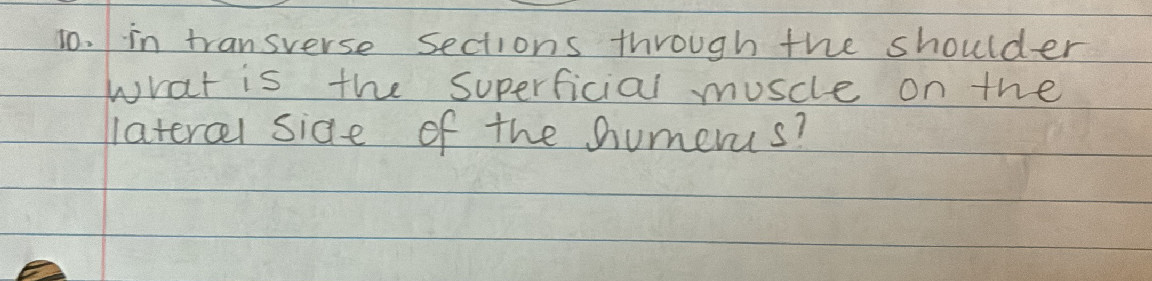 10. in transverse sections through the shoulder
what is the superficial muscle on the
lateral side of the humerus?